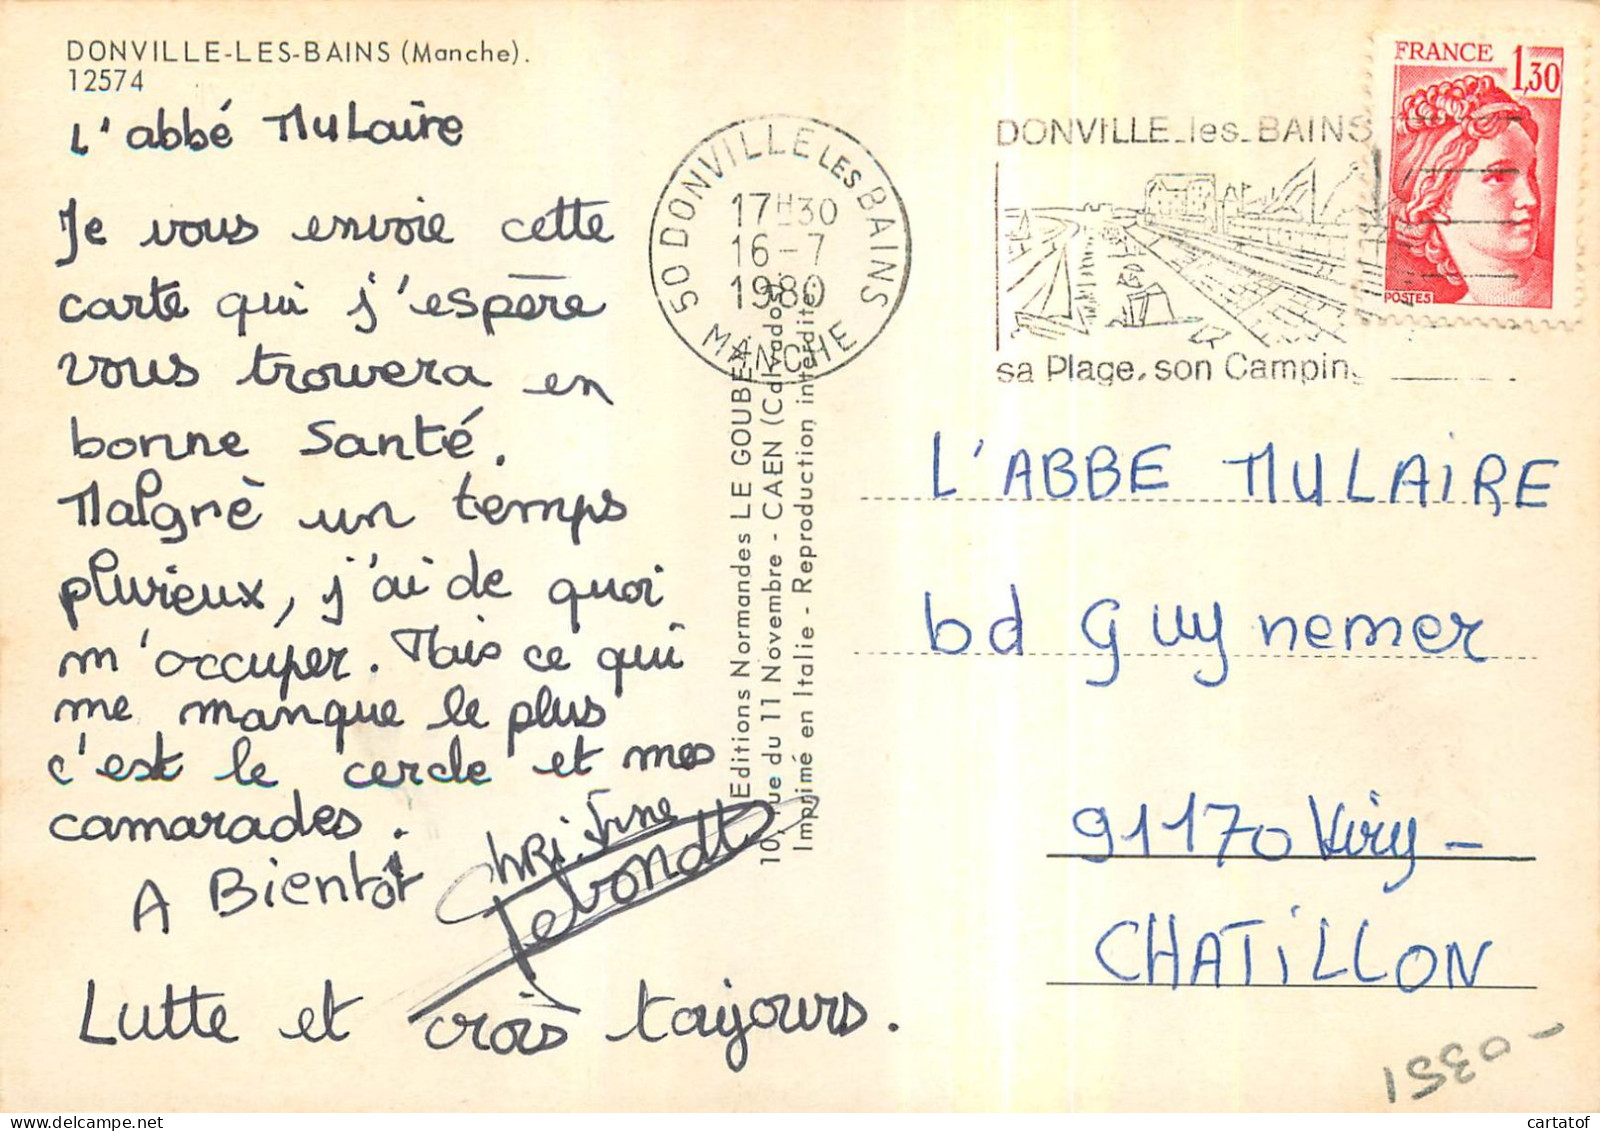 DONVILLE-LES-BAINS (Manche).
12574
L'abbé Mulaire
Je vous envoie cette
carte qui j'espère
vous trouvera en
bonne santé.
Malgrè un temps
pluvieux, j'ai de quoi
m'occuper. Mais ce qui
me manque le plus
c'est le cercle et mes
camarades.
A Bientôt
Christine
Lutte et crois toujours.
Editions Normandes LE GOUBEY
10, rue du 11 Novembre - CAEN (Calvados)
Imprimé en Italie - Reproduction interdite.
50 DONVILLE LES BAINS
17H30
16-7
1980
MANCHE
DONVILLE-les-BAINS
sa Plage, son Camping
FRANCE 1,30
POSTES
L'ABBE MULAIRE
bd Guynemer
91170 Viry-
CHATILLON
cartatof